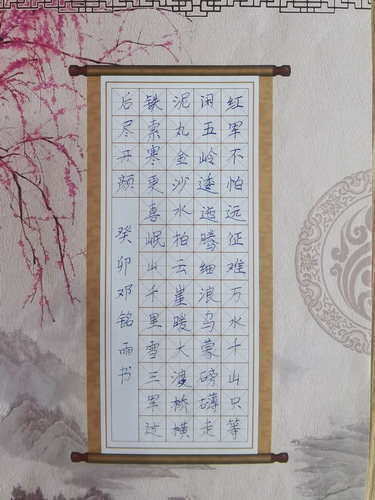 红军不怕远征难万水千山只等
闲五岭逶迤腾细浪乌蒙磅礴走
泥丸金沙水拍云崖暖大渡桥横
铁索寒更喜岷山千里雪三军过
后尽开颜
癸卯邓铭雨书